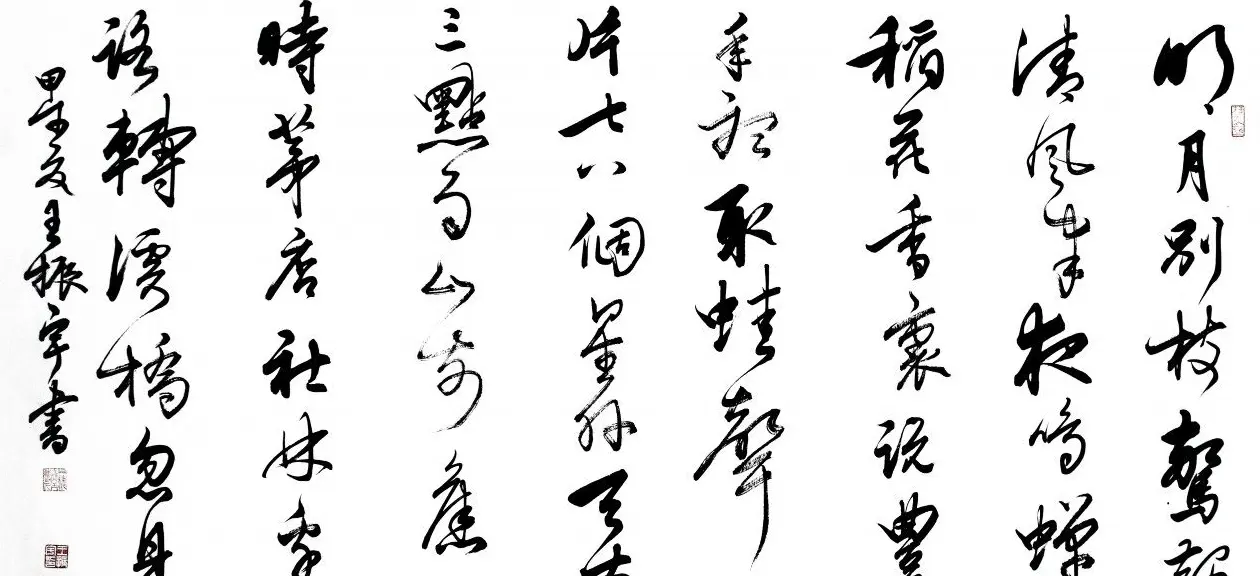 明月別枝驚
清風半夜鳴蟬
稻花香裏說豐
年聽取蛙聲
片七八個星外天
三點雨山前舊
時茅店社林邊
路轉溪橋忽見
甲 夏王振宇書